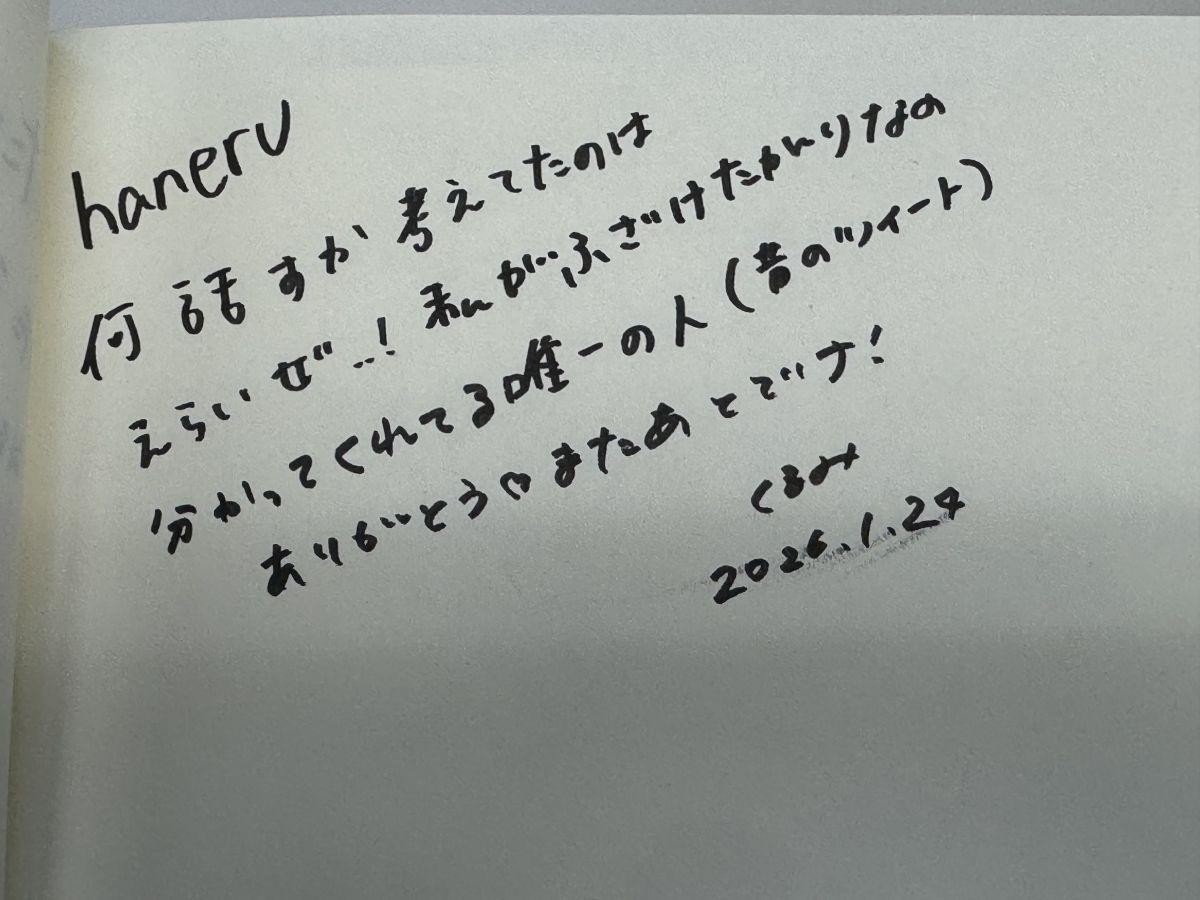 haneru
何話すか考えてたのは
えらいぜ..! 私がふざけたがりなの
分かってくれてる唯一の人(昔のツイート)
ありがとう♡またあとでナ!
くるみ
2026.1.24